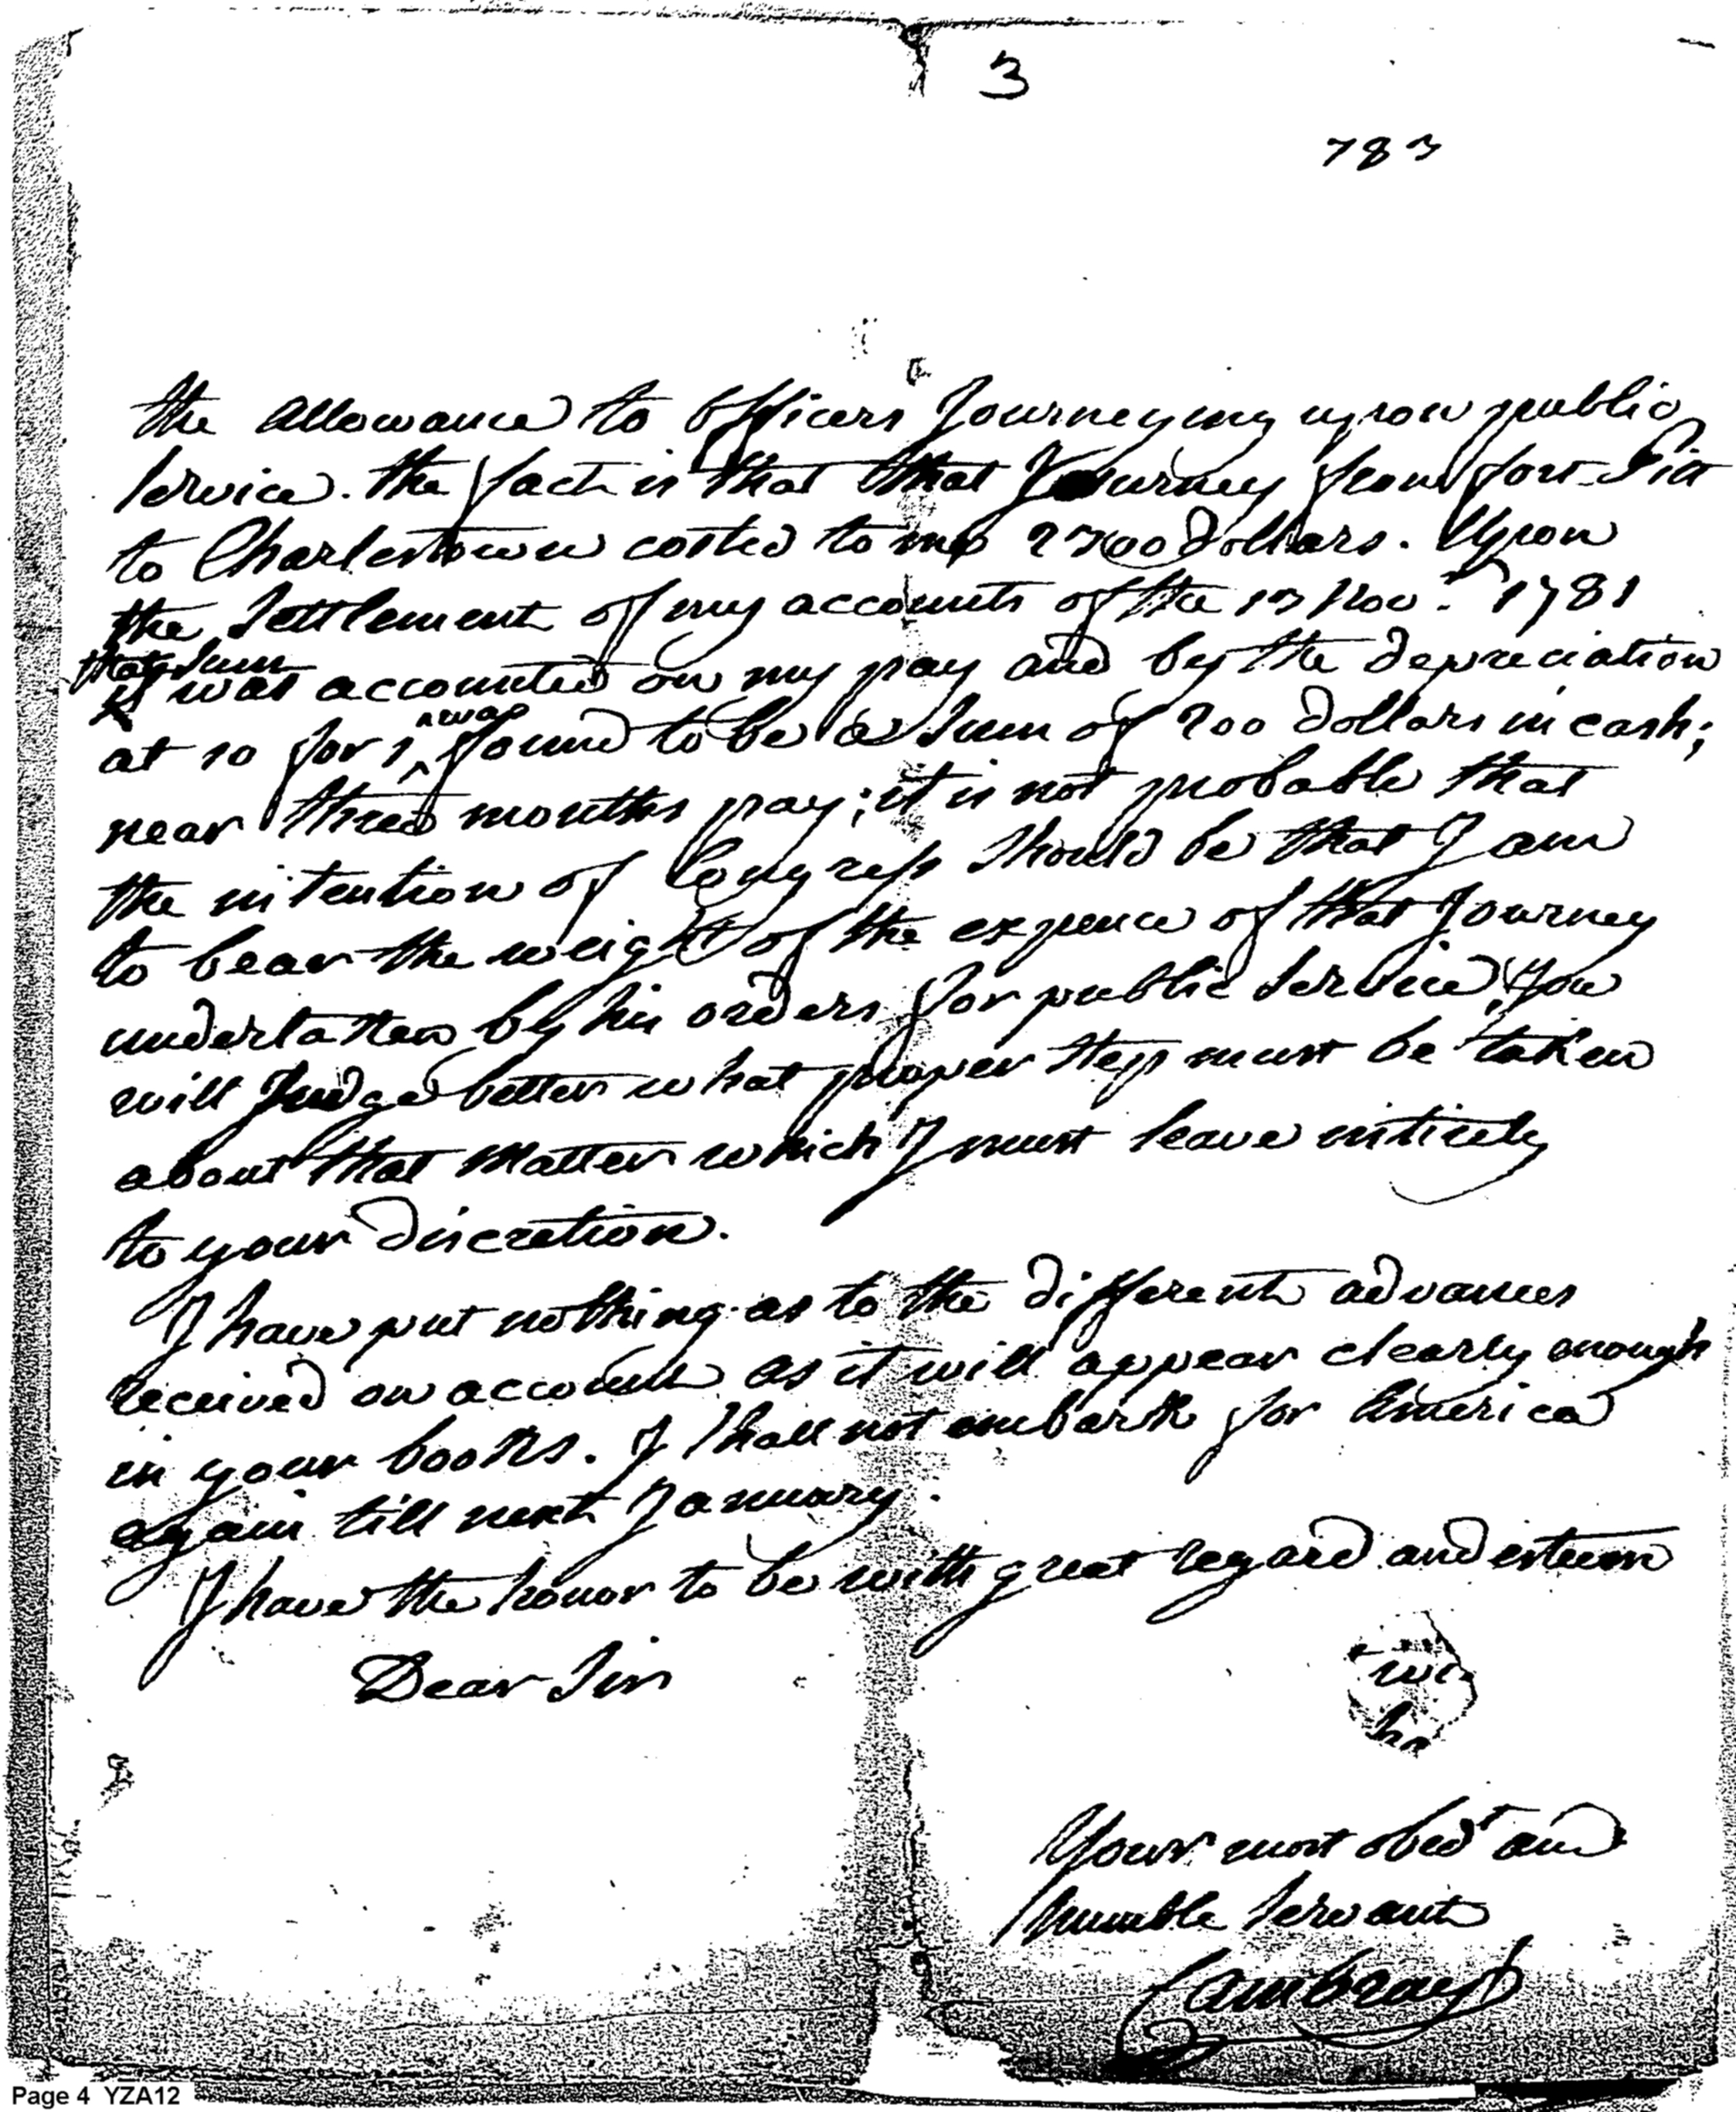 3
783
the allowance to officers Journeying upon public
service. the fact is that that Journey from fort Pitt
to Charlestown costed to me 2700 dollars. Upon
the Settlement of my accounts of the 13 Nov.r 1781
that Sum
it was accounted on my pay and by the depreciation
was
at 10 for 1 found to be a Sum of 200 dollars in cash;
near three months pay; it is not probable that
the intention of Congress Should be that I am
to bear the weight of the expence of that Journey
undertaken by his orders for public Service, you
will Judge better what proper step must be taken
about that Matter which I must leave intirely
to your discretion.
I have put nothing as to the different advances
received on account as it will appear clearly enough
in your books. I Shall not embark for America
again till next January.
I have the honor to be with great regard and esteem
Dear Sir
Your most obedt and
humble Servant
Cambray
Page 4 YZA12